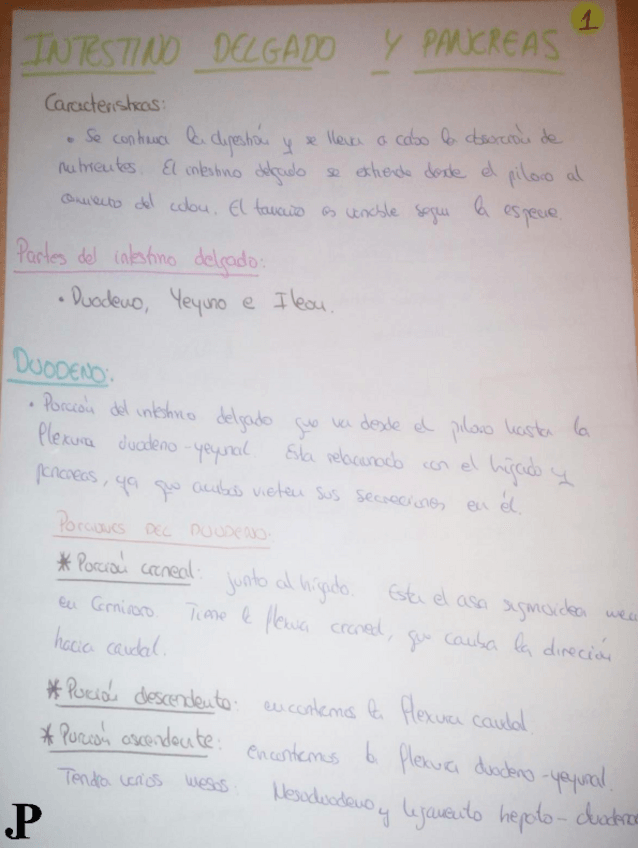 1
INTESTINO DELGADO Y PANCREAS
Características:
• Se continua la digestión y se lleva a cabo la absorción de
nutrientes. El intestino delgado se extiende desde el piloro al
comienzo del colon. El tamaño es variable segun la especie.
Partes del intestino delgado:
• Duodeno, Yeyuno e Ileon.
DUODENO:
• Porción del intestino delgado que va desde el piloro hasta la
flexura duodeno-yeyunal. Esta relacionado con el hígado y
páncreas, ya que ambos vierten sus secreciones en él.
PORCIONES DEL DUODENO:
* Porción craneal: junto al hígado. Esta el asa sigmoidea
en Carnívoro. Tiene la flexura craneal, que causa la direción
hacia caudal.
* Porción descendente: encontemos la flexura caudal.
* Porción ascendente: encontemos la flexura duodeno-yeyunal.
Tendra varios mesos: Mesoduodeno y ligamento hepato-duodeno
JP